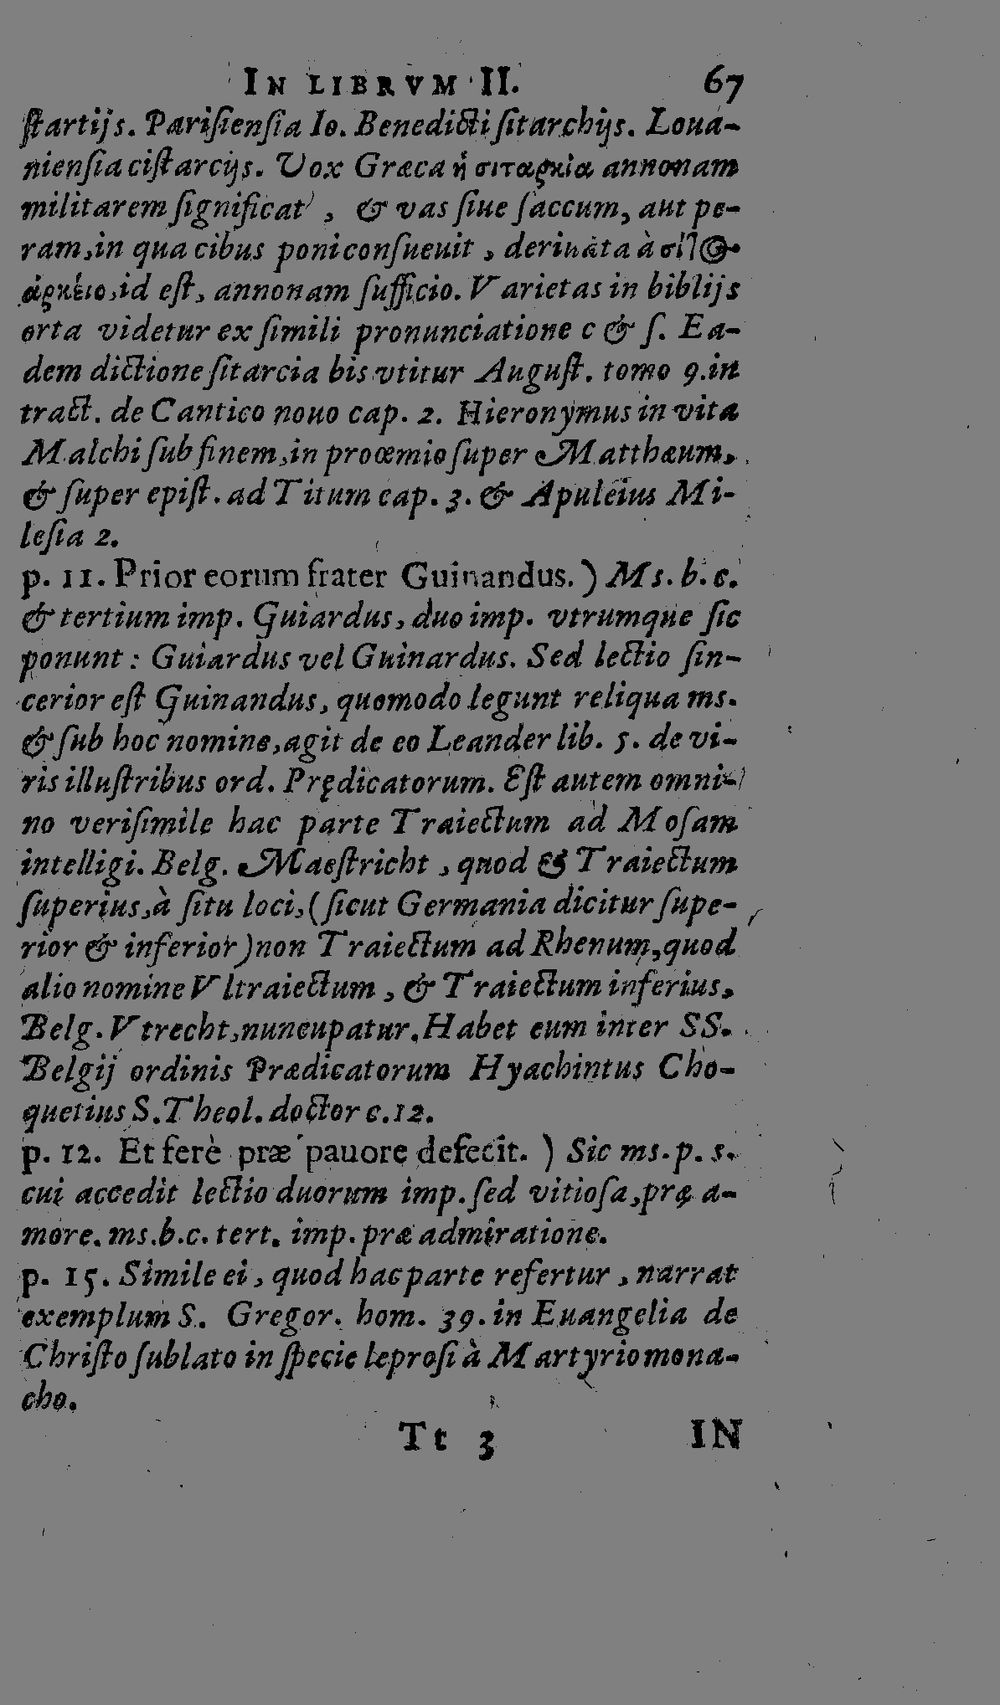 IN LIBRVM II. 67
ſtartijs. Pariſienſia Io. Benedicti ſitarchijs. Loua-
nienſia ciſtarcijs. Vox Græca ἡ σιταρκία annonam
militarem ſignificat, & vas ſiue ſaccum, aut pe-
ram, in qua cibus poni conſueuit, deriuata à
ἀρκέω, id eſt, annonam ſufficio. Varietas in biblijs
orta videtur ex ſimili pronunciatione c & ſ. Ea-
dem dictione ſitarcia bis vtitur Auguſt. tomo 9. in
tract. de Cantico nouo cap. 2. Hieronymus in vita
Malchi ſub finem, in proœmio ſuper Matthæum,
& ſuper epiſt. ad Titum cap. 3. & Apuleius Mi-
leſia 2.
p. 11. Prior eorum frater Guinandus.) Ms. b. c.
& tertium imp. Guiardus, duo imp. vtrumque ſic
ponunt: Guiardus vel Guinardus. Sed lectio ſin-
cerior eſt Guinandus, quomodo legunt reliqua ms.
& ſub hoc nomine, agit de eo Leander lib. 5. de vi-
ris illuſtribus ord. Prędicatorum. Eſt autem omni-
no veriſimile hac parte Traiectum ad Moſam
intelligi. Belg. Maeſtricht, quod & Traiectum
ſuperius, à ſitu loci, (ſicut Germania dicitur ſupe-
rior & inferior) non Traiectum ad Rhenum, quod
alio nomine Vltraiectum, & Traiectum inferius,
Belg. Vtrecht, nuncupatur. Habet eum inter SS.
Belgij ordinis Prædicatorum Hyachintus Cho-
quetius S. Theol. doctor c. 12.
p. 12. Et ferè præ pauore defecit. ) Sic ms. p. s.
cui accedit lectio duorum imp. ſed vitioſa, prę a-
more. ms. b. c. tert. imp. præ admiratione.
p. 15. Simile ei, quod hac parte refertur, narrat
exemplum S. Gregor. hom. 39. in Euangelia de
Chriſto ſublato in ſpecie leproſi à Martyrio mona-
cho.
Tt 3 IN